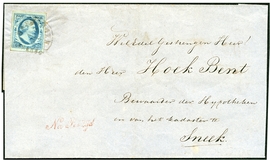 WelEdel Gestrengen Heer
den Heer Hoek Bent
Bewaarder der Hypotheken
en van het Kadaster te
Sneek.